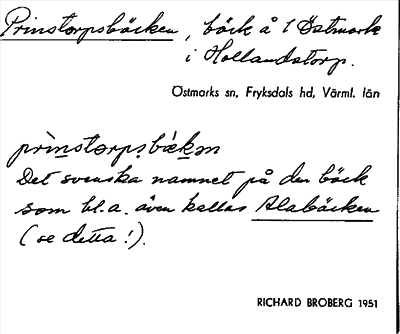 Prinstorpsbäcken, bäck å 1 Östmark
i Hollandstorp.
Östmarks sn, Fryksdals hd, Värml. län
prìnstorpsbäkən
Det svenska namnet på den bäck
som bl.a. även kallas Alabäcken
(se detta!).
RICHARD BROBERG 1951